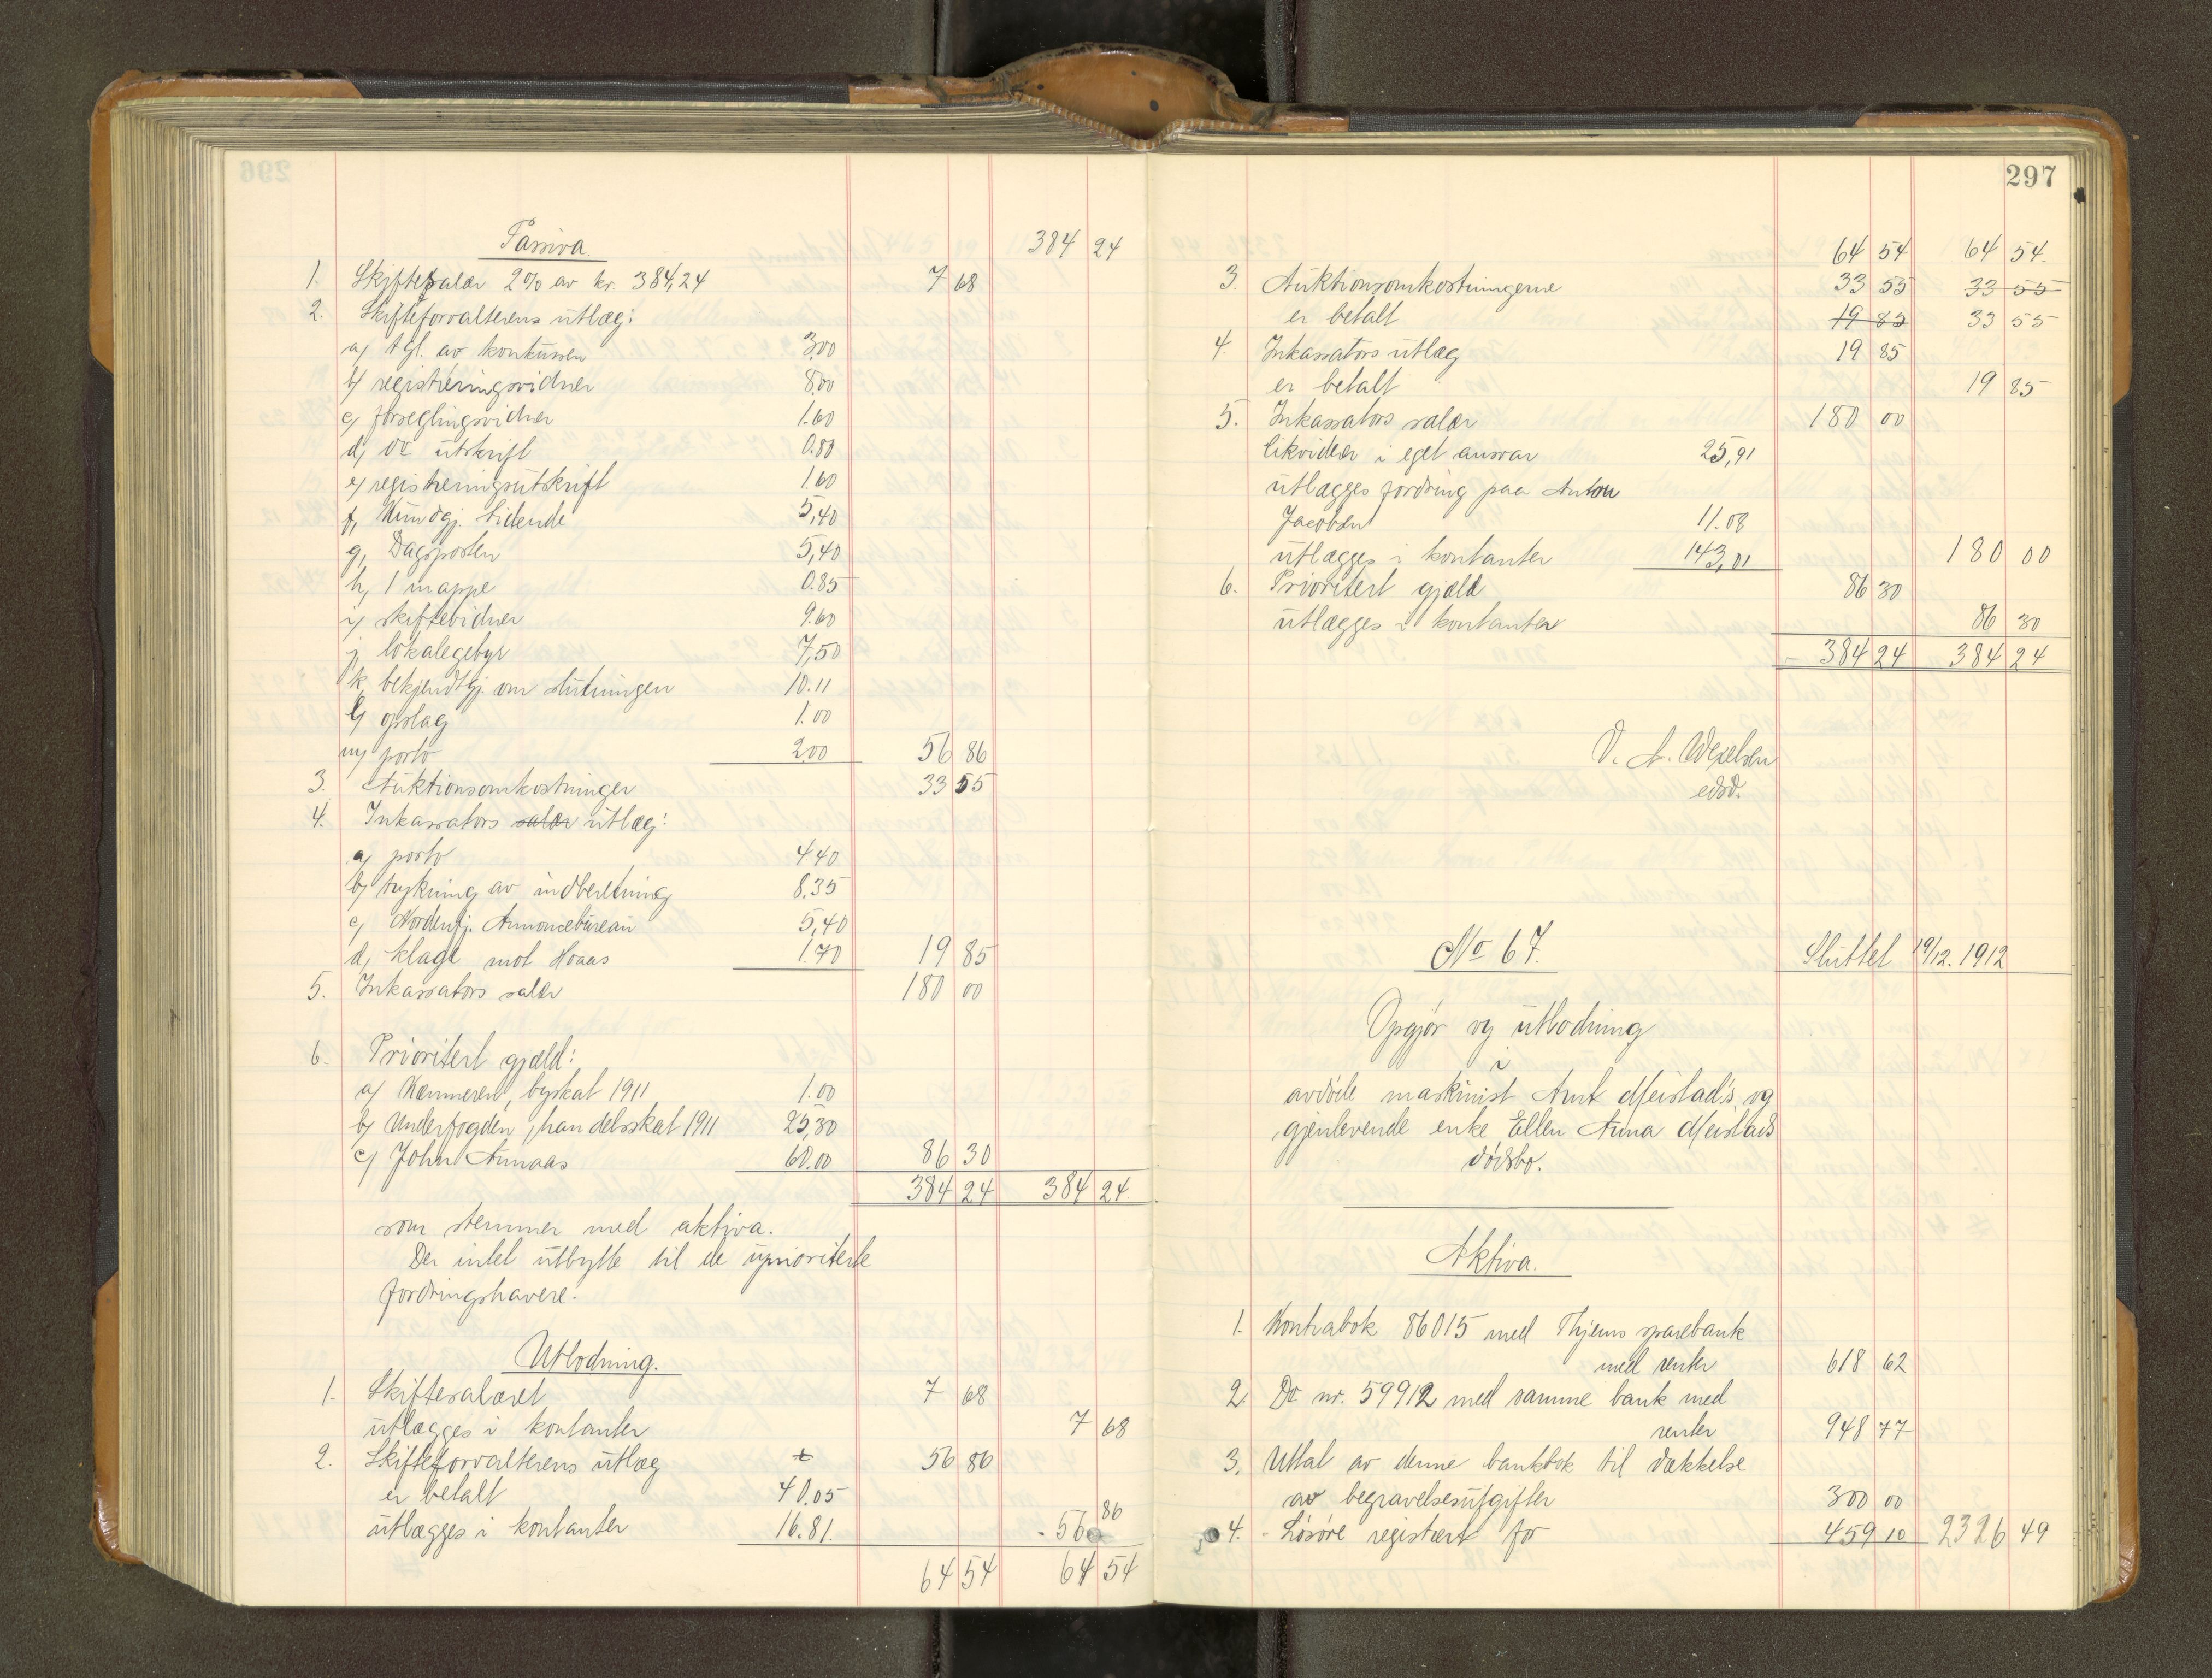 296
Passiva. 384 24
1. Skiftesalær 2% av kr. 384,24 7 68
2. Skifteforvalterens utlæg:
a) tgl. av konkursen 3,00
b) registreringsvidner 8.00
c) forseglingsvidner 1.60
d) do utskrift 0.80
e) registreringsutskrift 1.60
f) Kundgj. tidende 5,40
g) Dagsposten 5,40
h) 1 mappe 0.85
i) skiftevidner 9.60
j) lokalegebyr 7,50
k) bekjendtgj. om slutningen 10.11
l) opslag 1.00
m) porto 2.00 56 86
3. Auktionsomkostninger 33 55
4. Inkassators salær utlæg:
a) porto 4.40
b) trykning av indberetning 8.35
c) Nordenfj. Annoncebureau 5,40
d) klage mot Hoaas 1.70 19 85
5. Inkassators salær 180 00
6. Prioritert gjæld:
a) Kæmneren, byskat 1911 1.00
b) Underfogden, handelsskat 1911 25,30
c) John Aunaas 60.00 86 30
384 24 384 24
som stemmer med aktiva.
Der intet utbytte til de uprioriterte
fordringshavere.
Utlodning.
1. Skiftesalæret 7 68
utlægges i kontanter 7 68
2. Skifteforvalterens utlæg 56 86
er betalt 40.05
utlægges i kontanter 16.81. 56 86
64 54 64 54
297
64 54 64 54
3. Auktionsomkostningerne 33 55 33 55
er betalt 19 85 33 55
4. Inkassators utlæg 19 85
er betalt 19 85
5. Inkassators salær 180 00
likvider i eget ansvar 25,91
utlægges fordring paa Anton
Jacobsen 11.08
utlægges i kontanter 143,01 180 00
6. Prioritert gjæld 86 30
utlægges i kontanter 86 30
384 24 384 24
V. A. Wexelsen
edsv.
No 67. Sluttet 19/12. 1912
Opgjør og utlodning
i
avdøde maskinist Arnt Meistad's og
gjenlevende enke Ellen Anna Meistads
dødsbo.
Aktiva.
1. Kontrabok 86015 med Thjems sparebank
med renter 618 62
2. Do nr. 59912 med samme bank med
renter 948 77
3. Uttat av denne bankbok til dækkelse
av begravelsesutgifter 300 00
4. Løsøre registrert for 459 10 2326 49